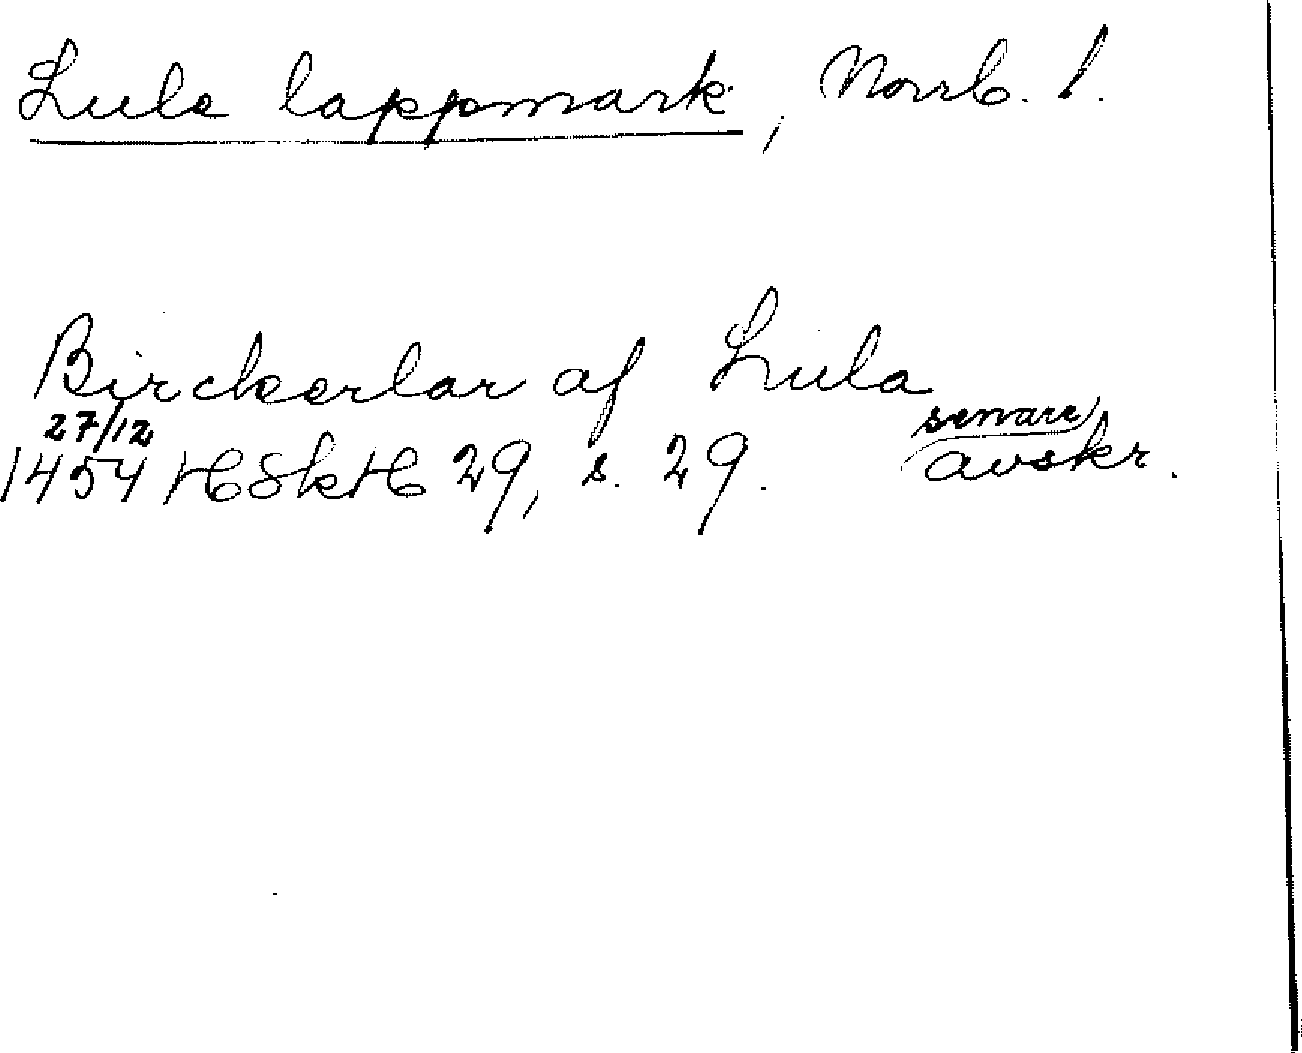 Lule lappmark, Norrb. l.
Birckerlar af Lula
27/12 senare
1454 HSkH 29, s. 29. avskr.